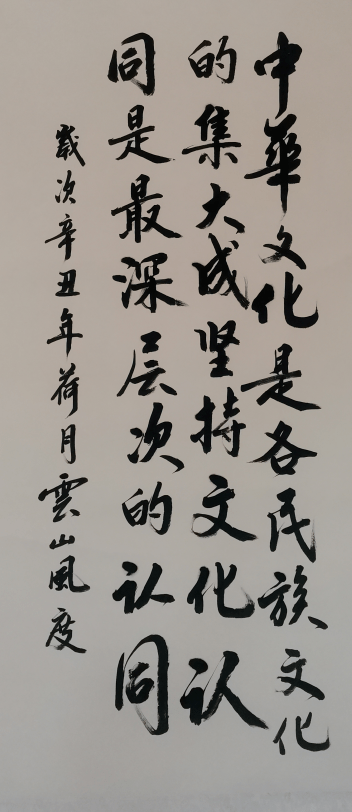 中華文化是各民族文化
的集大成坚持文化认
同是最深层次的认同
歲次辛丑年荷月雲山風度